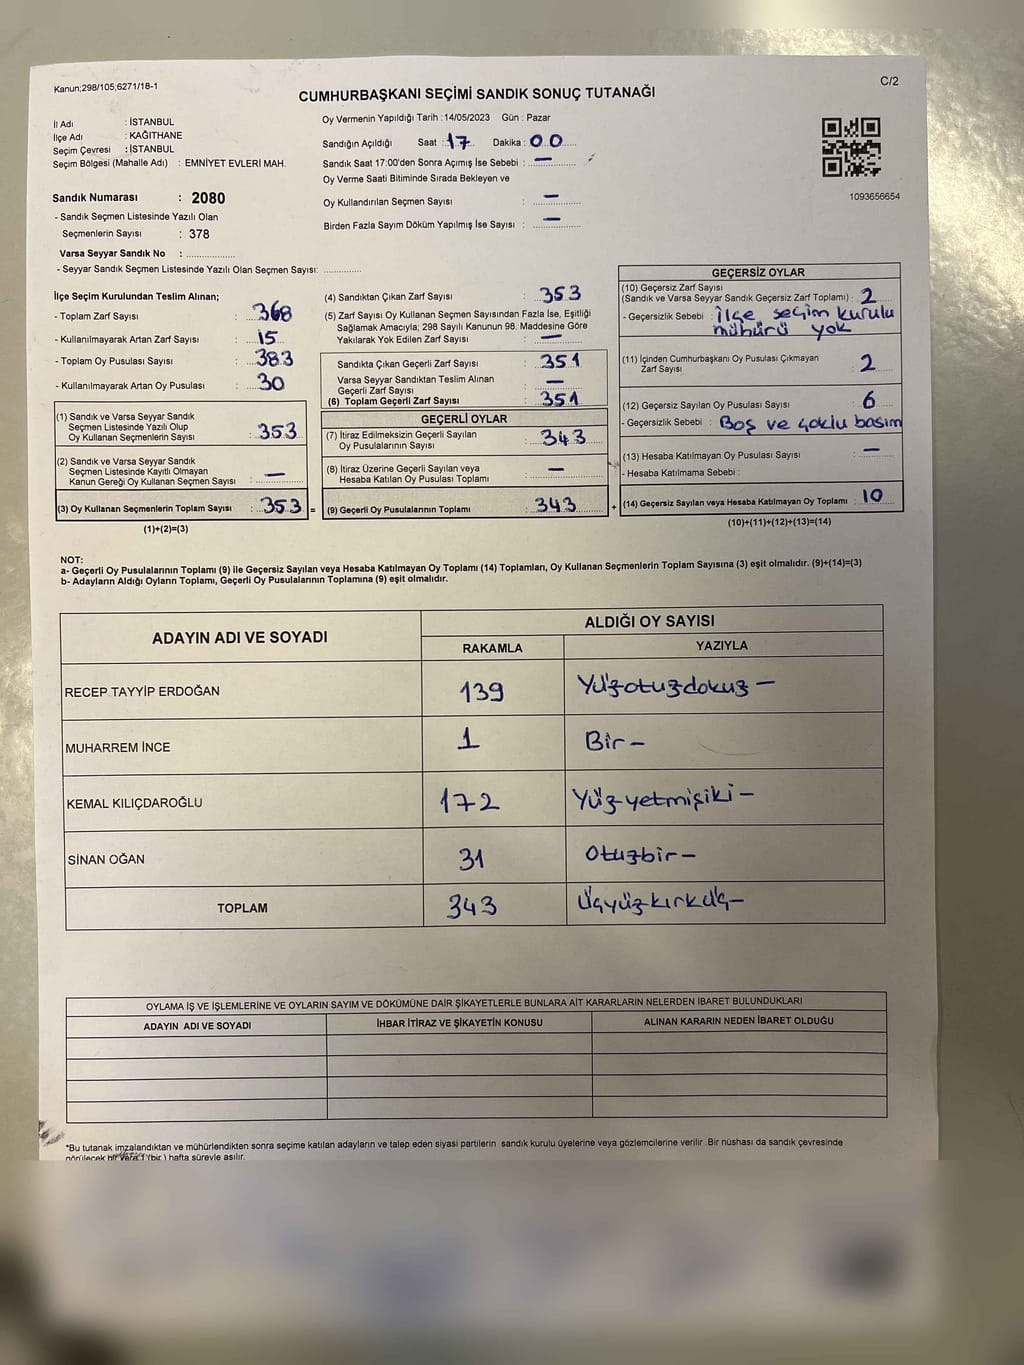 Kanun;298/105;6271/18-1
C/2
CUMHURBAŞKANI SEÇİMİ SANDIK SONUÇ TUTANAĞI
İl Adı : İSTANBUL
İlçe Adı : KAĞITHANE
Seçim Çevresi : İSTANBUL
Seçim Bölgesi (Mahalle Adı) : EMNİYET EVLERİ MAH.
Sandık Numarası : 2080
- Sandık Seçmen Listesinde Yazılı Olan
Seçmenlerin Sayısı : 378
Varsa Seyyar Sandık No : ..................
- Seyyar Sandık Seçmen Listesinde Yazılı Olan Seçmen Sayısı: ..............
Oy Vermenin Yapıldığı Tarih : 14/05/2023 Gün : Pazar
Sandığın Açıldığı Saat : 17 Dakika : 00
Sandık Saat 17:00'den Sonra Açımış İse Sebebi : —
Oy Verme Saati Bitiminde Sırada Bekleyen ve
Oy Kullandırılan Seçmen Sayısı : —
Birden Fazla Sayım Döküm Yapılmış İse Sayısı : —
1093656654
İlçe Seçim Kurulundan Teslim Alınan;
- Toplam Zarf Sayısı : 368
- Kullanılmayarak Artan Zarf Sayısı : 15
- Toplam Oy Pusulası Sayısı : 383
- Kullanılmayarak Artan Oy Pusulası : 30
(1) Sandık ve Varsa Seyyar Sandık
Seçmen Listesinde Yazılı Olup
Oy Kullanan Seçmenlerin Sayısı : 353
(2) Sandık ve Varsa Seyyar Sandık
Seçmen Listesinde Kayıtlı Olmayan
Kanun Gereği Oy Kullanan Seçmen Sayısı : —
(3) Oy Kullanan Seçmenlerin Toplam Sayısı : 353 =
(1)+(2)=(3)
(4) Sandıktan Çıkan Zarf Sayısı : 353
(5) Zarf Sayısı Oy Kullanan Seçmen Sayısından Fazla İse, Eşitliği
Sağlamak Amacıyla; 298 Sayılı Kanunun 98. Maddesine Göre
Yakılarak Yok Edilen Zarf Sayısı : —
Sandıkta Çıkan Geçerli Zarf Sayısı : 351
Varsa Seyyar Sandıktan Teslim Alınan
Geçerli Zarf Sayısı : —
(6) Toplam Geçerli Zarf Sayısı : 351
GEÇERLİ OYLAR
(7) İtiraz Edilmeksizin Geçerli Sayılan
Oy Pusulası Toplamı : 343
(8) İtiraz Üzerine Geçerli Sayılan veya
Hesaba Katılan Oy Pusulası Toplamı : —
(9) Geçerli Oy Pusulalarının Toplamı : 343 +
GEÇERSİZ OYLAR
(10) Geçersiz Zarf Sayısı
(Sandık ve Varsa Seyyar Sandık Geçersiz Zarf Toplamı) : 2
- Geçersizlik Sebebi : İlçe seçim kurulu
mühürü yok
(11) İçinden Cumhurbaşkanı Oy Pusulası Çıkmayan
Zarf Sayısı : 2
(12) Geçersiz Sayılan Oy Pusulası Sayısı : 6
- Geçersizlik Sebebi : Boş ve çoklu basım
(13) Hesaba Katılmayan Oy Pusulası Sayısı : —
- Hesaba Katılmama Sebebi :
(14) Geçersiz Sayılan veya Hesaba Katılmayan Oy Toplamı : 10
(10)+(11)+(12)+(13)=(14)
NOT:
a- Geçerli Oy Pusulalarının Toplamı (9) ile Geçersiz Sayılan veya Hesaba Katılmayan Oy Toplamı (14) Toplamları, Oy Kullanan Seçmenlerin Toplam Sayısına (3) eşit olmalıdır. (9)+(14)=(3)
b- Adayların Aldığı Oyların Toplamı, Geçerli Oy Pusulalarının Toplamına (9) eşit olmalıdır.
ADAYIN ADI VE SOYADI
ALDIĞI OY SAYISI
RAKAMLA YAZIYLA
RECEP TAYYİP ERDOĞAN 139 Yüzotuzdokuz —
MUHARREM İNCE 1 Bir —
KEMAL KILIÇDAROĞLU 172 Yüzyetmişiki —
SİNAN OĞAN 31 Otuzbir —
TOPLAM 343 Üçyüzkırküç —
OYLAMA İŞ VE İŞLEMLERİNE VE OYLARIN SAYIM VE DÖKÜMÜNE DAİR ŞİKAYETLERLE BUNLARA AİT KARARLARIN NELERDEN İBARET BULUNDUKLARI
ADAYIN ADI VE SOYADI İHBAR İTİRAZ VE ŞİKAYETİN KONUSU ALINAN KARARIN NEDEN İBARET OLDUĞU
*Bu tutanak imzalandıktan ve mühürlendikten sonra seçime katılan adayların ve talep eden siyasi partilerin sandık kurulu üyelerine veya gözlemcilerine verilir .Bir nüshası da sandık çevresinde
görülecek bir yere 1 (bir ) hafta süreyle asılır.